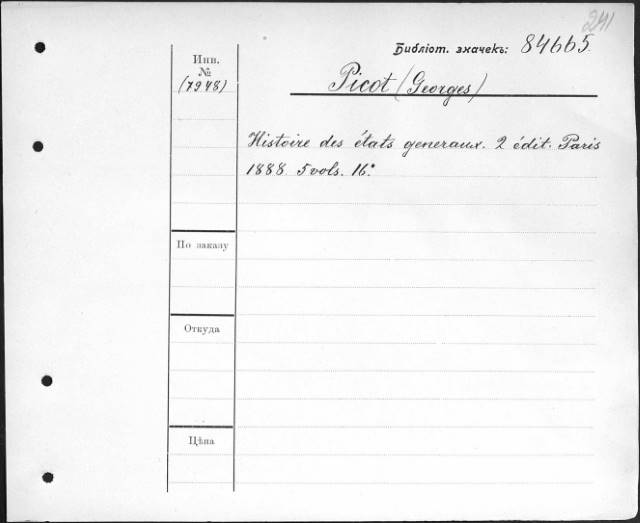 241
Библіот. значекъ: 84665.
Инв.
№
(7948)
Picot (Georges)
Histoire des états generaux. 2 édit. Paris
1888. 5 vols. 16.°
По заказу
Откуда
Цѣна